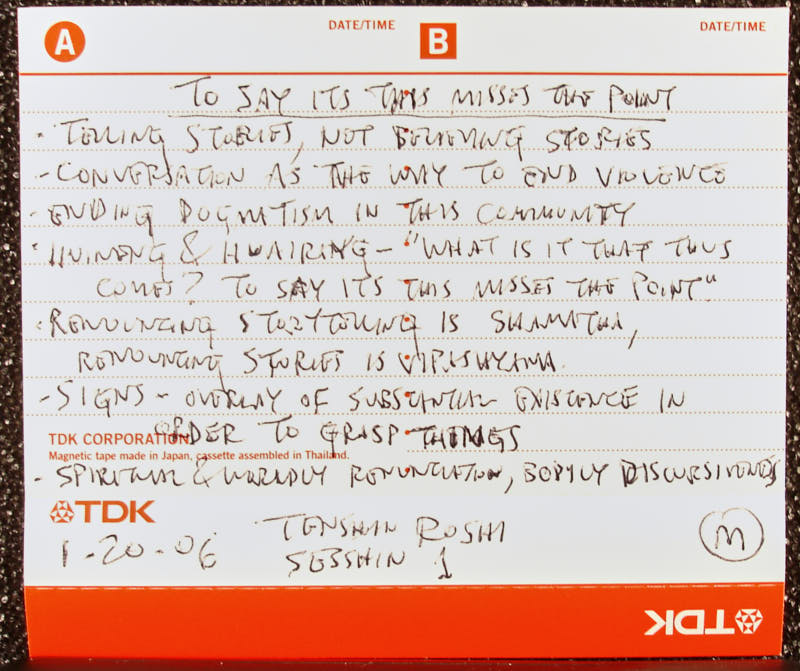 A DATE/TIME B DATE/TIME
TO SAY ITS THIS MISSES THE POINT
- TELLING STORIES, NOT BELIEVING STORIES
- CONVERSATION AS THE WAY TO END VIOLENCE
- ENDING DOGMATISM IN THIS COMMUNITY
- HUINENG & HUAIRANG - "WHAT IS IT THAT THUS
COMES? TO SAY ITS THIS MISSES THE POINT"
- RENOUNCING STORYTELLING IS SHAMATHA,
RENOUNCING STORIES IS VIPASHYANA.
- SIGNS - OVERLAY OF SUBSTANTIAL EXISTENCE IN
ORDER TO GRASP THINGS
TDK CORPORATION
Magnetic tape made in Japan, cassette assembled in Thailand.
- SPIRITUAL & WORLDLY RENUNCIATION, BODILY DISCURSIVENESS
TDK
TENSHIN ROSHI
1-20-06 SESSHIN 1 M
TDK